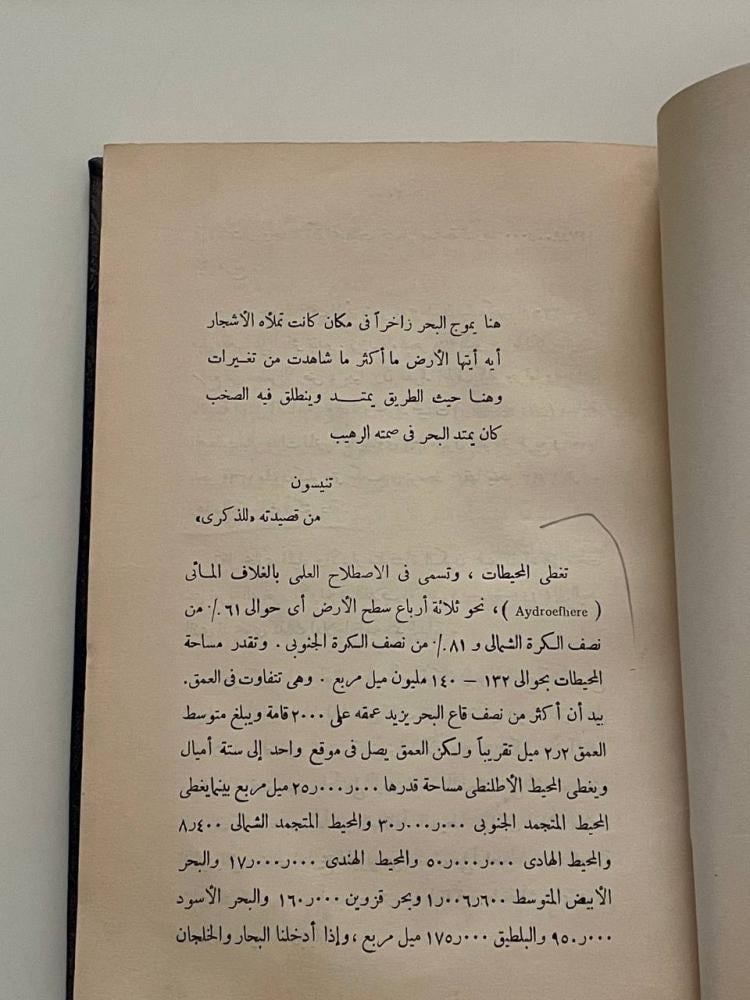 هنا يموج البحر زاخراً فى مكان كانت تملأه الأشجار
أيه أيتها الأرض ما أكثر ما شاهدت من تغيرات
وهنا حيث الطريق يمتد وينطلق فيه الصخب
كان يمتد البحر فى صمته الرهيب
تنيسون
من قصيدته «للذكرى»
تغطى المحيطات ، وتسمى فى الاصطلاح العلمى بالغلاف المائى
( Aydroefhere ) ، نحو ثلاثة أرباع سطح الأرض أى حوالى ٦١ ./· من
نصف الكرة الشمالى و ٨١ ./· من نصف الكرة الجنوبى . وتقدر مساحة
المحيطات بحوالى ١٣٢ – ١٤٠ مليون ميل مربع . وهى تتفاوت فى العمق.
بيد أن أكثر من نصف قاع البحر يزيد عمقه على ٢٠٠٠ قامة ويبلغ متوسط
العمق ٢ر٢ ميل تقريباً ولكن العمق يصل فى موقع واحد إلى ستة أميال
ويغطى المحيط الأطلنطى مساحة قدرها ٠٠٠ر٠٠٠ر٢٥ ميل مربع بينما يغطى
المحيط المتجمد الجنوبى ٠٠٠ر٠٠٠ر٣٠ والمحيط المتجمد الشمالى ٤٠٠ر٨
والمحيط الهادى ٠٠٠ر٠٠٠ر٥٠ والمحيط الهندى ٠٠٠ر٠٠٠ر١٧ والبحر
الأبيض المتوسط ٦٠٠ر٠٠٦ر١ وبحر قزوين ٠٠٠ر١٦٠ والبحر الأسود
٠٠٠ر٩٥٠ والبلطيق ٠٠٠ر١٧٥ ميل مربع ، وإذا أدخلنا البحار والخلجان